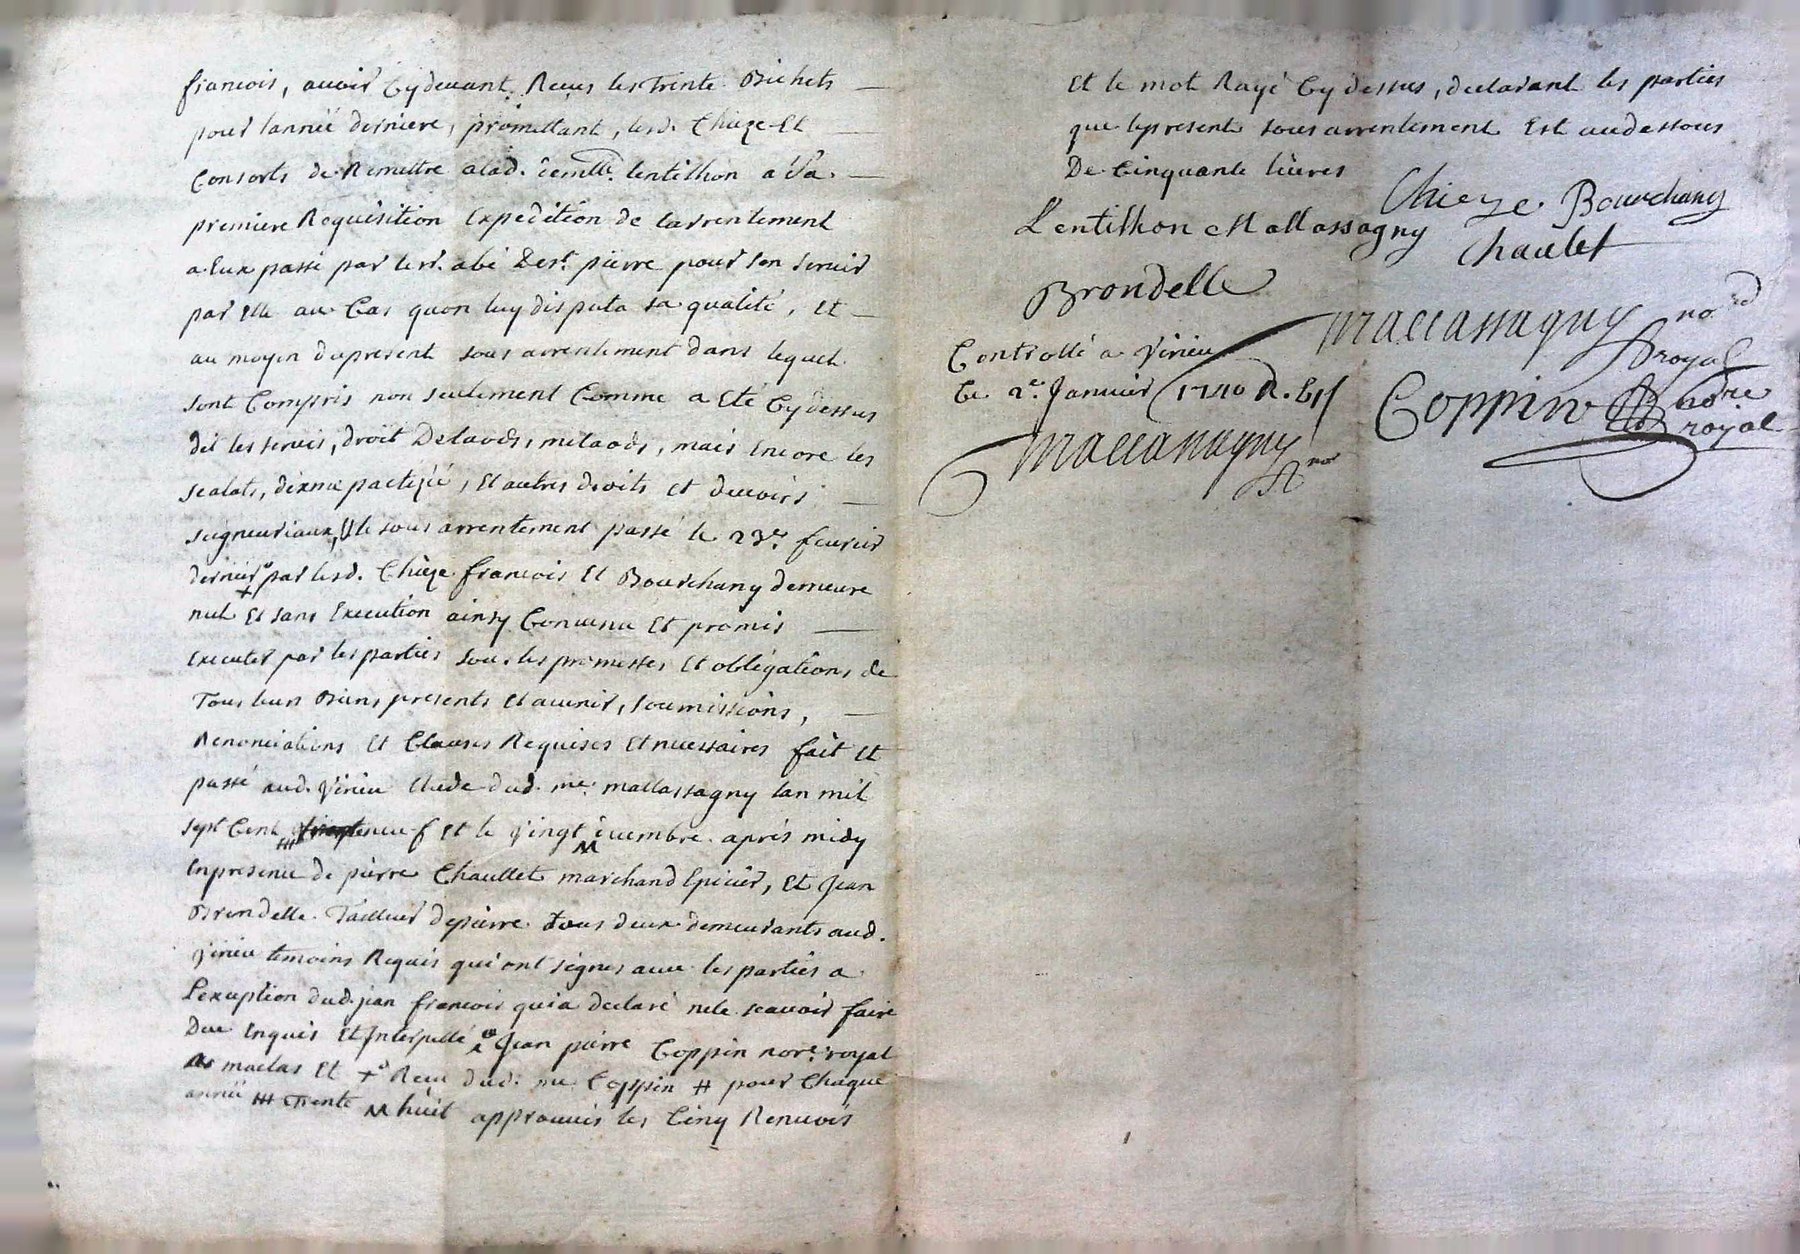 francois, auoir Cydeuant Recus les trente Bichets
pour lannée derniere, promettant, lesd. Chieze Et
Consorts de Remettre alad. demlle. Lentilhon a Sa
premiere Requisition Expedition de larrentement
a Eux passé par le sr. abé De st. pierre pour Sen Seruir
par Elle au Cas quon luy disputa sa qualité, Et
au moyen dupresent sous arrentement dans lequel
sont Compris non seulement Comme a Eté Cydessus
dit les seruis, droit De laods, milaods, mais Encore les
, dixme , Et autres droits Et deuoirs
seigneuriaux, le sous arrentement passé le 23e. feurier
dernier par lesd. Chieze francois Et Bourchany demeure
nul Et sans Execution ainsy Conuenu Et promis
Executer par les parties Sous les promesses Et obligations de
Tous leurs Biens presents Et auenir, Soumissions,
Renonciations Et Clauses Requises Et necessaires fait Et
passé aud. Virieu Etude dud. me. mallassagny lan mil
sept Cent neuf Et le Vingt uembre apres midy
Enpresence de pierre Chaullet marchand Epicier, Et Jean
Brondelle Tailleur depierre tous deux demeurants aud.
Virieu temoins Requis qui ont signes auec les parties a
Lexception dud. jean francois quia declaré nele scauoir faire
Due Enquis Et Interpellé Jean pierre Coppin nore. royal
de maclas Et + Receu dud. me Coppin # pour Chaque
année trente huit approuués les Cinq Renuois
Et le mot Rayé Cy dessus, declarant les parties
que lepresent sous arrentement Est audessous
De Cinquante liures
Chieze Bourchany
Lentilhon Mallassagny Chaulet
Brondelle
Mallassagny no.
royal
Controllé a Virieu
Le 2e. Januier 1740 R.
Mallassagny
Coppin nore
royal